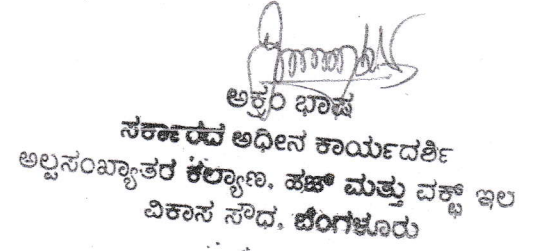 ಅಕ್ರಂ ಭಾಷ
ಸರ್ಕಾರದ ಅಧೀನ ಕಾರ್ಯದರ್ಶಿ
ಅಲ್ಪಸಂಖ್ಯಾತರ ಕಲ್ಯಾಣ, ಹಜ್ ಮತ್ತು ವಕ್ಫ್ ಇಲ
ವಿಕಾಸ ಸೌಧ, ಬೆಂಗಳೂರು